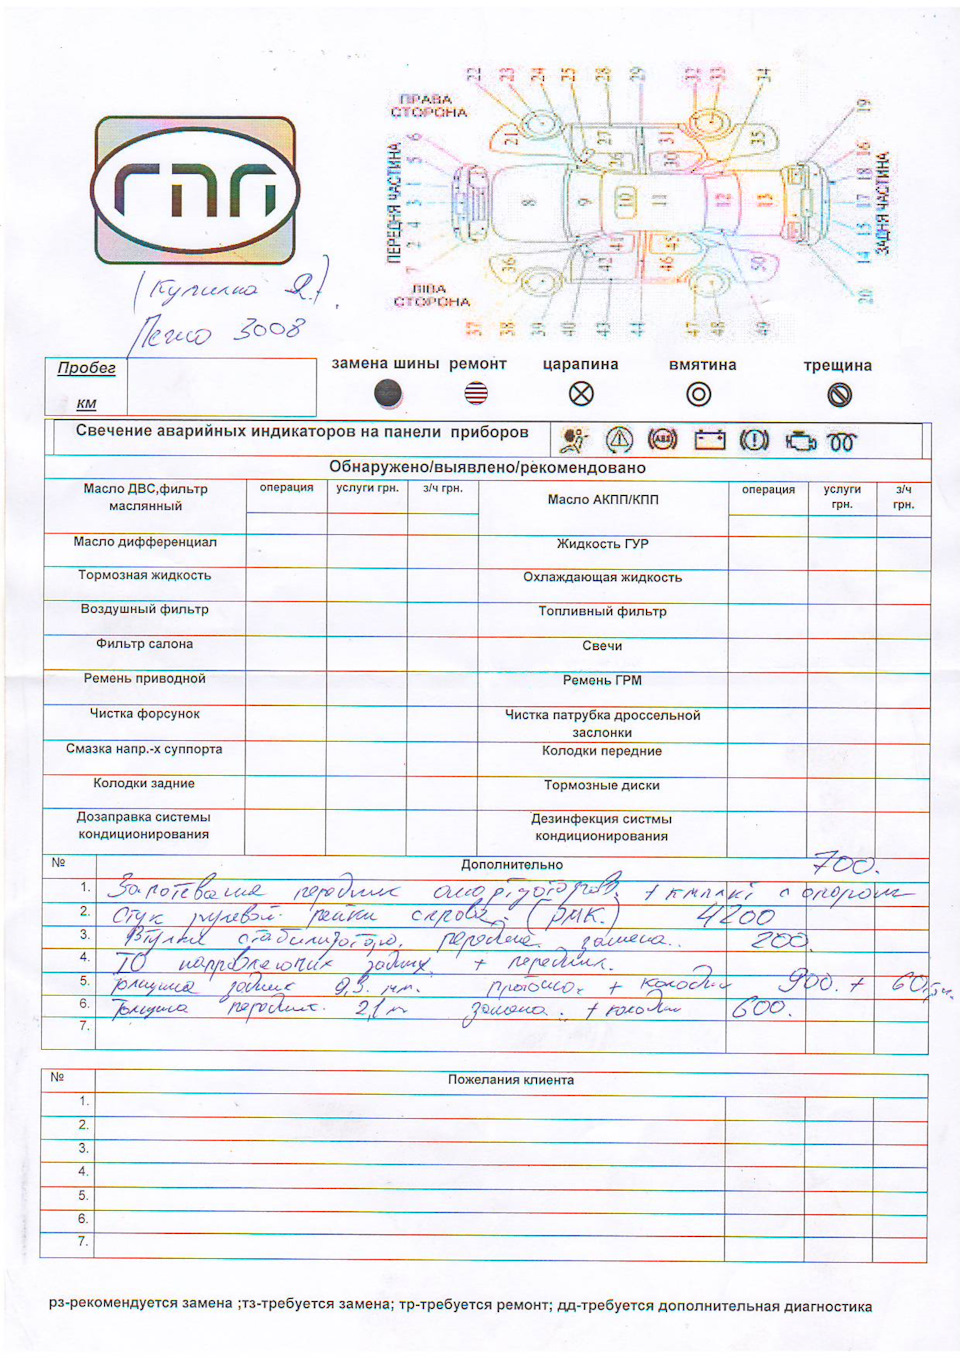 ПРАВА СТОРОНА
22 23 24 25 28 29 32 33 34 19
21 27 26 31 30 35
ПЕРЕДНЯ ЧАСТИНА
6 5 1 3 4 2 7
8 9 10 11 12 13
16 18 17 15 14 20
ЗАДНЯ ЧАСТИНА
36 42 41 46 45 50
ЛІВА СТОРОНА
37 38 39 40 43 44 47 48 49
ГПП
(Купилка Я.)
Пежо 3008
Пробег км
замена шины ремонт царапина вмятина трещина
Свечение аварийных индикаторов на панели приборов
ABS
Обнаружено/выявлено/рекомендовано
Масло ДВС,фильтр маслянный операция услуги грн. з/ч грн. Масло АКПП/КПП операция услуги грн. з/ч грн.
Масло дифференциал Жидкость ГУР
Тормозная жидкость Охлаждающая жидкость
Воздушный фильтр Топливный фильтр
Фильтр салона Свечи
Ремень приводной Ремень ГРМ
Чистка форсунок Чистка патрубка дроссельной заслонки
Смазка напр.-х суппорта Колодки передние
Колодки задние Тормозные диски
Дозаправка системы кондиционирования Дезинфекция систмы кондиционирования
№ Дополнительно 700.
1. Запотевание передних амортизаторов +
2. Стук рулевой рейки справа. (РМК.) 4200
3. Втулки стабилизатора. передн. замена.. 200.
4. ТО направляющих задних + передних.
5. Толщина задних 9,3 мм. проточка + колодки 900. + 60
6. Толщина передних. 21 замена.. + колодки 600.
7.
№ Пожелания клиента
1.
2.
3.
4.
5.
6.
7.
рз-рекомендуется замена ;тз-требуется замена; тр-требуется ремонт; дд-требуется дополнительная диагностика